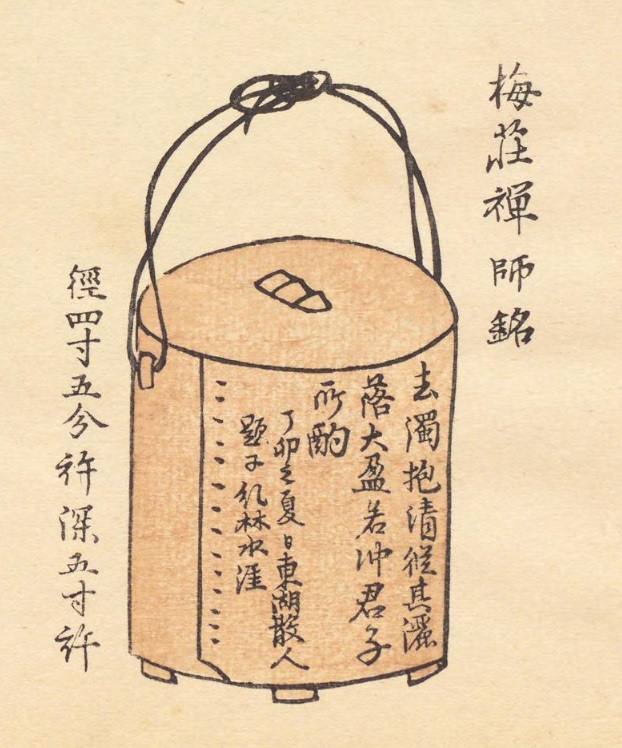 梅莊禅師銘
去濁抱清従其灑
落大盈若冲君子
所酌
丁卯之夏日東湖散人
題于 林水涯
徑四寸五分許深五寸許